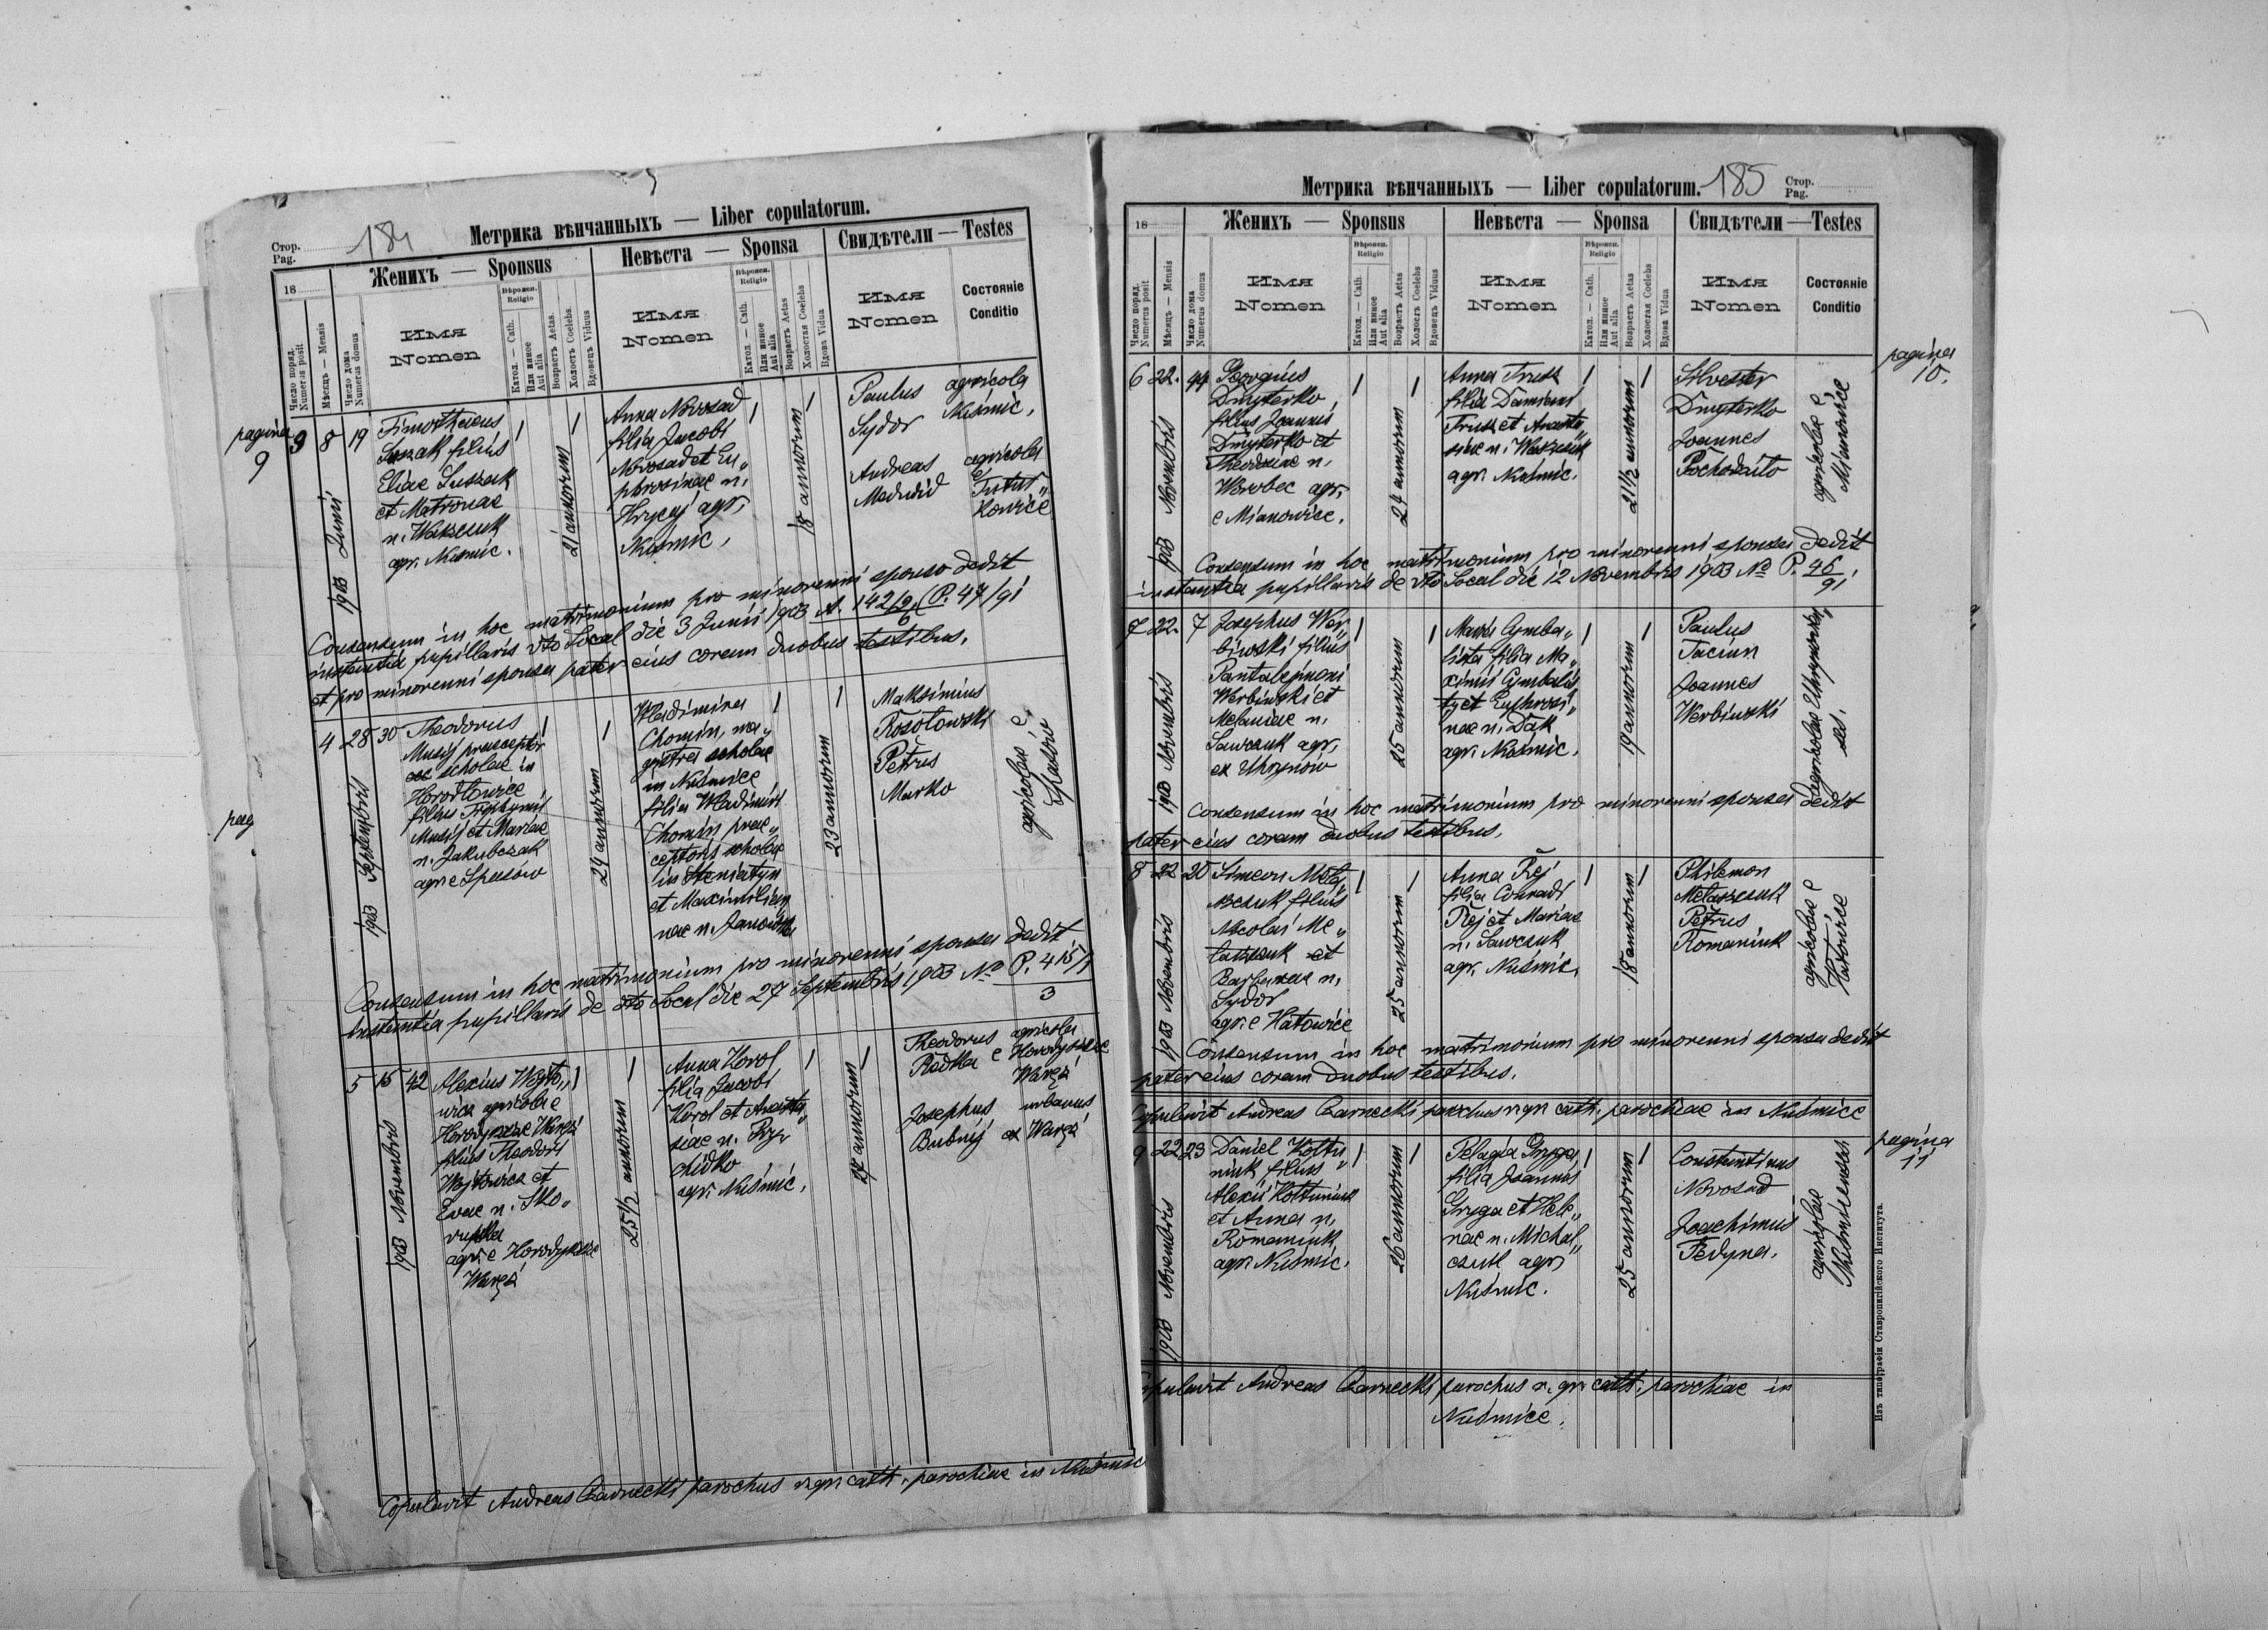 Стор.
Pag.
184
Метрика вѣнчанныхъ — Liber copulatorum.
18
Женихъ — Sponsus
Невѣста — Sponsa
Свидѣтели — Testes
Число поряд.
Numerus posit
Мѣсяцъ — Mensis
Число дома
Numerus domus
Имя
Nomen
Вѣроисп.
Religio
Катол. — Cath.
Или иное
Aut alia
Возрастъ Aetas.
Холостъ Coelebs.
Вдовецъ Viduus
Имя
Nomen
Вѣроисп.
Religio
Катол. — Cath.
Или иное
Aut alia
Возрастъ Aetas
Холостая Coelebs
Вдова Vidua
Имя
Nomen
Состояніе
Conditio
pagina
9
3 8 19
1903 Junii
Timotheus
Suszak filius
Eliae Suszak
et Matronae
n. Wakszuk
agr. Nuśmic.
1
21 annorum
1
Anna Novosad
filia Jacobi
Novosad et Eu„
phrosinae n.
Hrycaj agr.
Nuśmic,
1
18 annorum
1
Paulus
Sydor
Andreas
Medwid
agricola
Nuśmic,
agricola
e Tutur„
kowice
Consensum in hoc matrimonium pro minorenni sponso dedit
instantia pupillaris de dto Socal die 3 Junii 1903 A. 142/2/6 (P. 47/91
et pro minorenni sponsa pater eius coram duobus testibus.
pag
4 28 30
1903 Septembris
Theodorus
Musij praeceptor
scholae in
Horodłowice
filius
Musij et Mariae
n. Jakubczak
agr. e Spasów
1
24 annorum
1
Wladimira
Chomin, ma„
gistra scholae
in Nuśmice
filia Wladimiri
Chomin prae„
ceptoris scholae
in Steniatyn
et Maximilia„
nae n.
1
23 annorum
1
Maksimus
Rosołowski
Petrus
Marko
agricolae e
Spasów
Consensum in hoc matrimonium pro minorenni sponsa dedit
instantia pupillaris de dto Socal die 27 Septembris 1903 No P. 415/1
3
5 15 42
1903 Novembris
Alexius Wojto„
wicz agricola e
Horodyszcze Waręż
filius Theodori
Wojtowicz et
Evae n. Sko„
rupka
agr. e Horodyszcze
Waręż
1
25 1/2 annorum
1
Anna Korol
filia Jacobi
Korol et Anasta„
siae n. Pry„
chidko
agr. Nuśmic,
1
27 annorum
1
Theodorus
Redka
Josephus
Bubnij
agricola
e Horodyszcze
Waręż
urbanus
ex Waręż
Copulavit Andreas Czarnecki parochus r. gr. cath. parochiae in Nuśmic
Метрика вѣнчанныхъ — Liber copulatorum.
185
Стор.
Pag.
18
Женихъ — Sponsus
Невѣста — Sponsa
Свидѣтели — Testes
Число поряд.
Numerus posit
Мѣсяцъ — Mensis
Число дома
Numerus domus
Имя
Nomen
Вѣроисп.
Religio
Катол. — Cath.
Или иное
Aut alia
Возрастъ Aetas
Холостъ Coelebs
Вдовецъ Viduus
Имя
Nomen
Вѣроисп.
Religio
Катол. — Cath.
Или иное
Aut alia
Возрастъ Aetas
Холостая Coelebs
Вдова Vidua
Имя
Nomen
Состояніе
Conditio
pagina
10.
6 22. 44
1903 Novembris
Georgius
Dmyterko,
filius Joannis
Dmyterko et
Theodosiae n.
Worobec agr.
e Mianowice.
1
24 annorum
1
Anna Trusz
filia Damiani
Trusz et Anasta„
siae n. Wakszuk
agr. Nuśmic.
1
21 1/2 annorum
1
Silvester
Dmyterko
Joannes
Pochodaito
agricolae e
Mianowice
Consensum in hoc matrimonium pro minorenni sponsa dedit
instantia pupillaris de dto Socal die 12 Novembris 1903 No P. 46/91
7 22. 7
1903 Novembris
Josephus Wer„
biwski filius
Pantalejmoni
Werbiwski et
Melaniae n.
Sawczuk agr.
ex Uhrynów
1
25 annorum
1
Maria Cymba„
lista filia Ma„
ximi Cymbalis„
ty et Euphrosi„
nae n. Dak
agr. Nuśmic.
1
19 annorum
1
Paulus
Taciun
Joannes
Werbiwski
agricolae Uhrynovien„
ses.
Consensum in hoc matrimonium pro minorenni sponsa dedit
pater eius coram duobus testibus.
8 22 20
1903 Novembris
Simeon Mela„
szczuk filius
Nicolai Me„
laszczuk et
Barbarae n.
Sydor
agr. e Hatowice
1
25 annorum
1
Anna Rej
filia Conradi
Rej et Mariae
n. Sawczuk
agr. Nuśmic.
1
18 annorum
1
Philemon
Melaszczuk
Petrus
Romaniuk
agricolae e
Hatowice
Consensum in hoc matrimonium pro minorenni sponsa dedit
pater eius coram duobus testibus.
Copulavit Andreas Czarnecki parochus r. gr. cath. parochiae in Nuśmice
pagina
11
9 22 23
1903 Novembris
Daniel Kołtu„
niuk filius
Alexii Kołtuniuk
et Anna n.
Romaniuk
agr. Nuśmic.
1
26 annorum
1
Pelagia Gryga
filia Joannis
Gryga et Hele„
nae n. Michal„
czuk agr.
Nuśmic.
1
25 annorum
1
Constantinus
Novosad
Joachimus
Fedyna.
agricolae
Nuśmicenses
Copulavit Andreas Czarnecki parochus r. gr. cath. parochiae in
Nuśmice.
Изъ типографіи Ставропигійского Института.